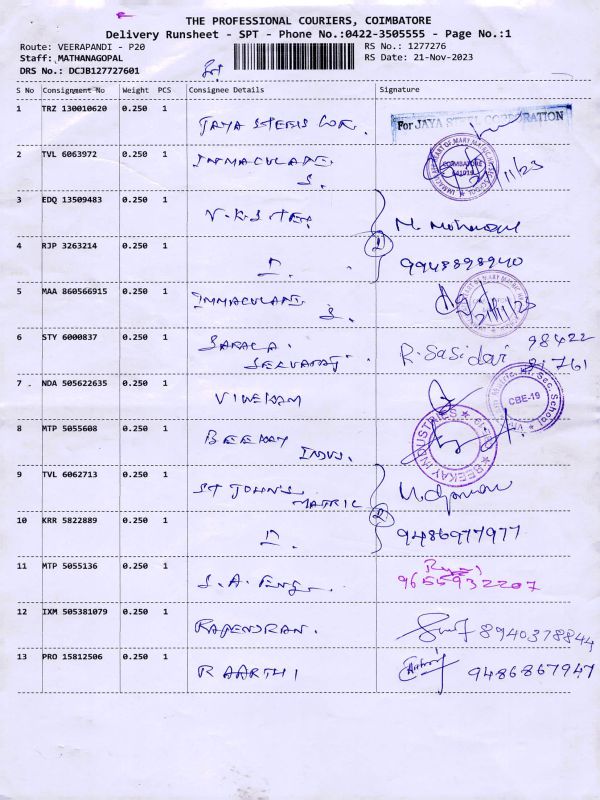 THE PROFESSIONAL COURIERS, COIMBATORE
Delivery Runsheet - SPT - Phone No.:0422-3505555 - Page No.:1
Route: VEERAPANDI - P20 RS No.: 1277276
Staff: MATHANAGOPAL RS Date: 21-Nov-2023
DRS No.: DCJB127727601
S No Consignment No Weight PCS Consignee Details Signature
1 TRZ 130010620 0.250 1 JAYA STEELS COR. For JAYA STEEL CORPORATION
2 TVL 6063972 0.250 1 IMMACULATE
S. 21/11/23
3 EDQ 13509483 0.250 1 V.K.S TEX
4 RJP 3263214 0.250 1 9948898940
5 MAA 860566915 0.250 1 IMMACULATE
S. 21/11/23
6 STY 6000837 0.250 1 SARALA R. Sasidar 98422
SELVARAJ 81761
7 NDA 505622635 0.250 1 VIVEKAM CBE-19
8 MTP 5055608 0.250 1 BEEKAY BEEKAY INDUSTRIES
INDUS.
9 TVL 6062713 0.250 1 ST JOHN'S
MATRIC
10 KRR 5822889 0.250 1 9486977977
11 MTP 5055136 0.250 1 S.A. Eng. 9655932207
12 IXM 505381079 0.250 1 RAJENDRAN. 8940378844
13 PRO 15812506 0.250 1 R AARTHI 9486867947